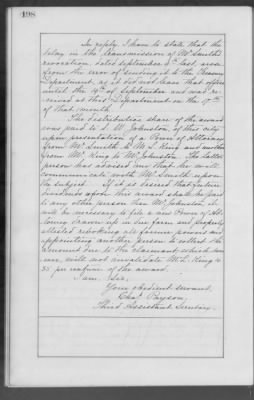 498
In reply I have to state that the
delay in the transmission of Mr. Smith's
revocation, dated September 5th last, arose
from the error of sending it to the Treasury
Department, as it did not leave that office
until the 14th of September and was re-
ceived at this Department on the 17th
of that month.
The distributive share of the award
was paid to S. M. Johnston, of this city
upon presentation of a Power of Attorney
from Mr. Smith to M. L. King and another
from Mr. King to Mr. Johnston. The latter
person has advised me that he will
communicate with Mr. Smith upon
the subject. If it is desired that future
dividends upon this award shall be paid
to any other person than Mr. Johnston, it
will be necessary to file a new Power of At-
torney drawn up in due form and properly
attested revoking all former powers and
appointing another person to collect the
moneys due to the claimant which
will not invalidate M. L. King's
35 per centum of the award.
I am, Sir,
Your obedient servant,
Chas. Payson,
Third Assistant Secretary.